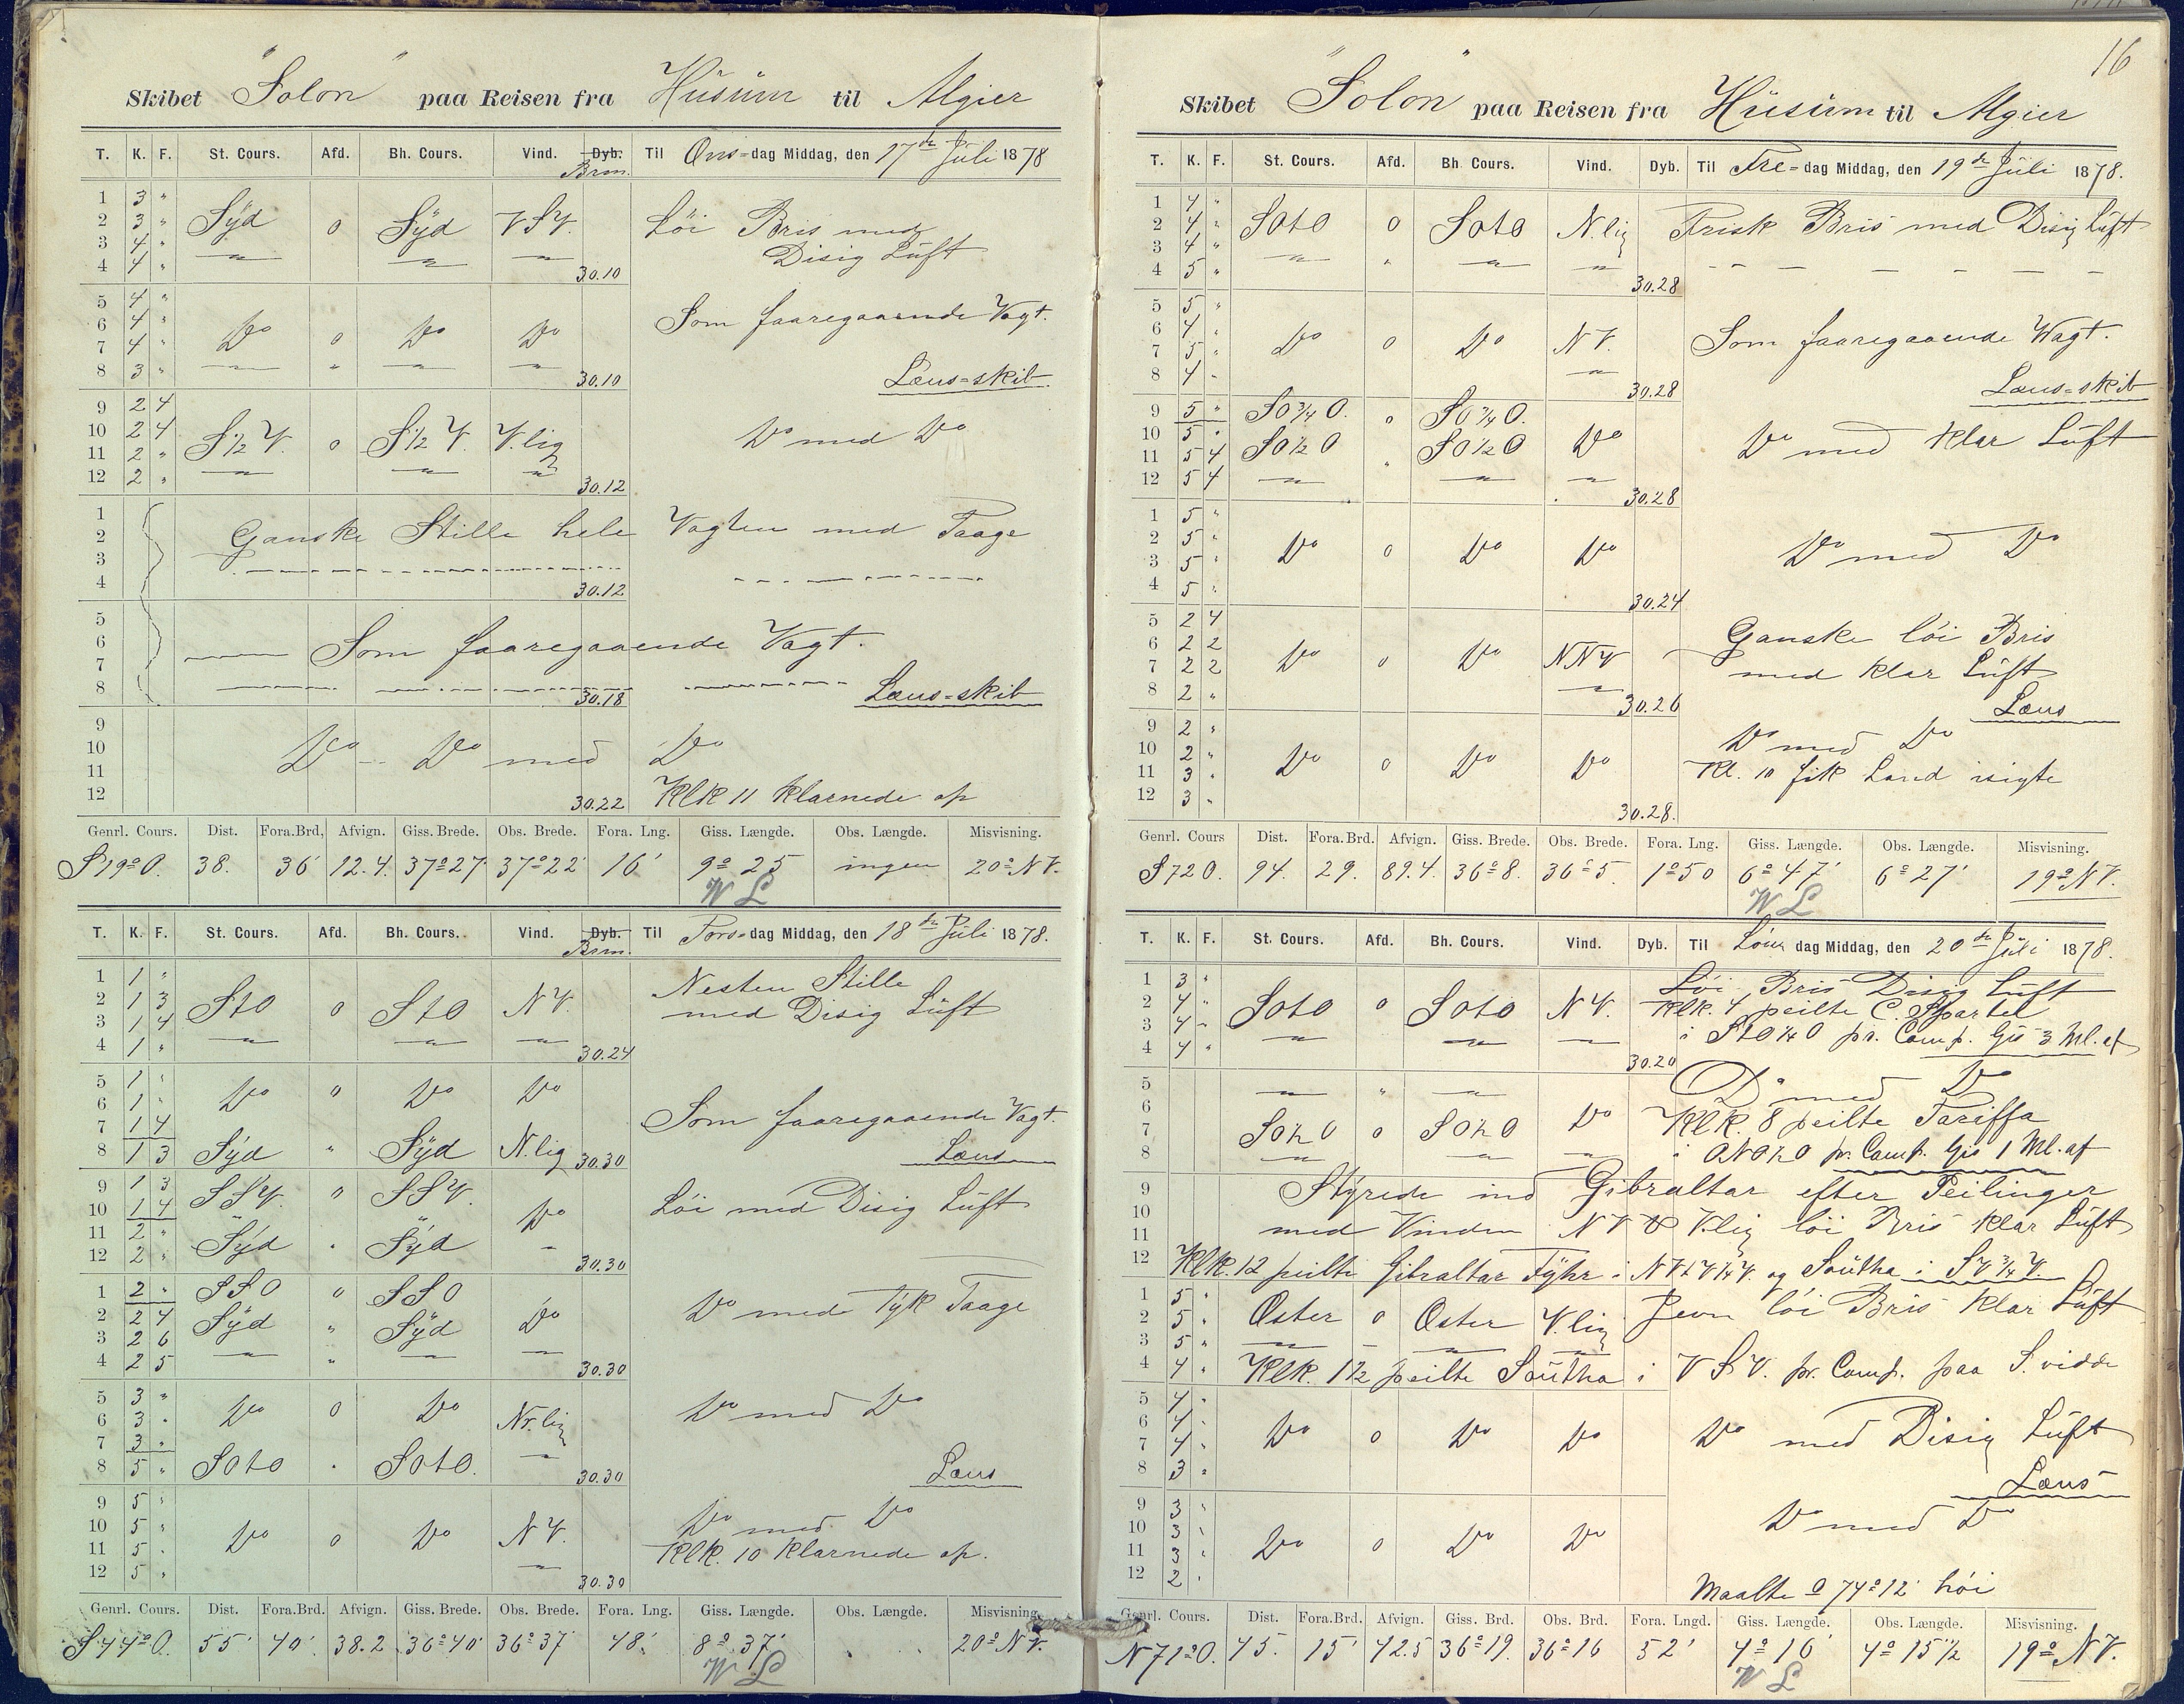 Skibet "Solon" paa Reisen fra Hüsüm til Algier
T. K. F. St. Cours. Afd. Bh. Cours. Vind. Dyb. Til Ons=dag Middag, den 17de Jüli 1878
Brm.
1 3 "
2 3 " Syd 0 Syd VSV. Löi Bris med
3 4 " Disig Lüft
4 4 " 30.10
5 4 "
6 4 " Som faaregaaende Vagt.
7 4 " Do 0 Do Do
8 3 " 30.10 Læns=skib.
9 2 4
10 2 4 S½V. 0 S½V. V.lig Do med Do
11 2 "
12 2 " 30.12
1
2 Ganske Stille hele Vagten med Taage
3
4 30.12
5
6 Som faaregaaende Vagt.
7
8 30.18 Læns=skib
9
10 Do Do med Do
11
12 30.22 Klk 11 klarnede op
Genrl. Cours. Dist. Fora.Brd. Afvign. Giss. Brede. Obs. Brede. Fora. Lng. Giss. Længde. Obs. Længde. Misvisning.
S19°O. 38. 36' 12.4. 37°27' 37°22' 16' 9°25 ingen 20°NV.
W L
T. K. F. St. Cours. Afd. Bh. Cours. Vind. Dyb. Til Tors=dag Middag, den 18de Jüli 1878.
Brm.
1 1 " Nesten Stille
2 1 3 StO 0 StO NV. med Disig Lüft
3 1 4
4 1 " 30.24
5 1 " Do " Do Do
6 1 "
7 1 4 Som faaregaaende Vagt.
8 1 3 Syd " Syd N.lig 30.30 Læns
9 1 3 SSV. " SSV.
10 1 4 Do Löi med Disig Lüft
11 2 " Syd " Syd
12 2 " 30.30
1 2 " SSO 0 SSO
2 2 4 Syd " Syd Do Do med Tyk Taage
3 2 6
4 2 5 30.30
5 3 "
6 3 " Do 0 Do Nr.lig Do med Do
7 3 "
8 5 " SOtO " SOtO. 30.30 Læns
9 5 "
10 5 " Do 0 Do NV. Do med Do
11 5 " Klk. 10 klarnede op.
12 5 " 30.30
Genrl. Cours. Dist. Fora.Brd. Afvign. Giss. Brede. Obs. Brede. Fora. Lng. Giss. Længde. Obs. Længde. Misvisning.
S44°O. 55' 40' 38.2 36°40' 36°37' 48' 8°37' 20°NV.
W L
16
Skibet "Solon" paa Reisen fra Hüsüm til Algier
T. K. F. St. Cours. Afd. Bh. Cours. Vind. Dyb. Til Fre=dag Middag, den 19de Jüli 1878.
1 4 "
2 4 " SOtO 0 SOtO N.lig Frisk Bris med Disig Lüft
3 4 "
4 5 " 30.28
5 5 "
6 4 " Do 0 Do NV. Som faaregaaende Wagt.
7 5 "
8 4 " 30.28 Læns=skib
9 5 " SO¾O. 0 SO¾O.
10 5 " SO½O SO½O Do Do med klar Lüft
11 5 4
12 5 4 30.28
1 5 "
2 5 " Do 0 Do Do Do med Do
3 5 "
4 5 " 30.24
5 2 4 Ganske löi Bris
6 2 2 Do 0 Do NNV med klar Lüft
7 2 2
8 2 " 30.26 Læns
9 2 " Do med Do
10 2 " Do 0 Do Do
11 3 " Kl. 10 fik Land isigte
12 3 " 30.28.
Genrl. Cours Dist. Fora.Brd. Afvign. Giss. Brede. Obs. Brede. Fora. Lng. Giss. Længde. Obs. Længde. Misvisning.
S72O. 94. 29. 89.4. 36°8. 36°5. 1°50 6°47' 6°27' 19°NV.
W L
T. K. F. St. Cours. Afd. Bh. Cours. Vind. Dyb. Til Löver dag Middag, den 20de Jüli 1878.
1 3 " Löi Bris Disig Lüft
2 4 " SOtO 0 SOtO NV. Klk. 4 peilte C. Spartel
3 4 " i StO¼O pr. Comp. Gis 3 Ml. af
4 4 " 30.20
5 Do med Do
6 Klk. 8 peilte Tariffa
7 SO½O 0 SO½O Do
8 i ONO½O pr. Comp. Gis 1 Ml. af
9 Styrede ind Gibraltar efter Peilinger
10
11 med Vinden NV & V.lig löi Bris klar Lüft
12 Klk. 12 peilte Gibraltar Fyhr i NVtV¼V. og Soütha i SV¾V.
1 5 "
2 5 " Oster 0 Oster V.lig Jevn löi Bris klar Lüft
3 5 "
4 4 " Klk. 1½ peilte Soütha i VSV. pr. Comp. paa S. vidde
5 4 "
6 4 " Do 0 Do Do Do med Disig Lüft
7 4 "
8 3 " Læns
9 3 " Do med Do
10 3 " Do 0 Do Do
11 3 "
12 2 " Maalte 74°12' höi
Genrl. Cours. Dist. Fora.Brd. Afvign. Giss. Brd. Obs. Brd. Fora. Lngd. Giss. Længde. Obs. Længde. Misvisning.
N71°O. 45. 15' 42.5 36°19. 36°16 52' 4°16' 4°15½ 19°NV.
W L